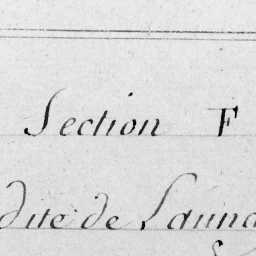 Section F
dite de Launa